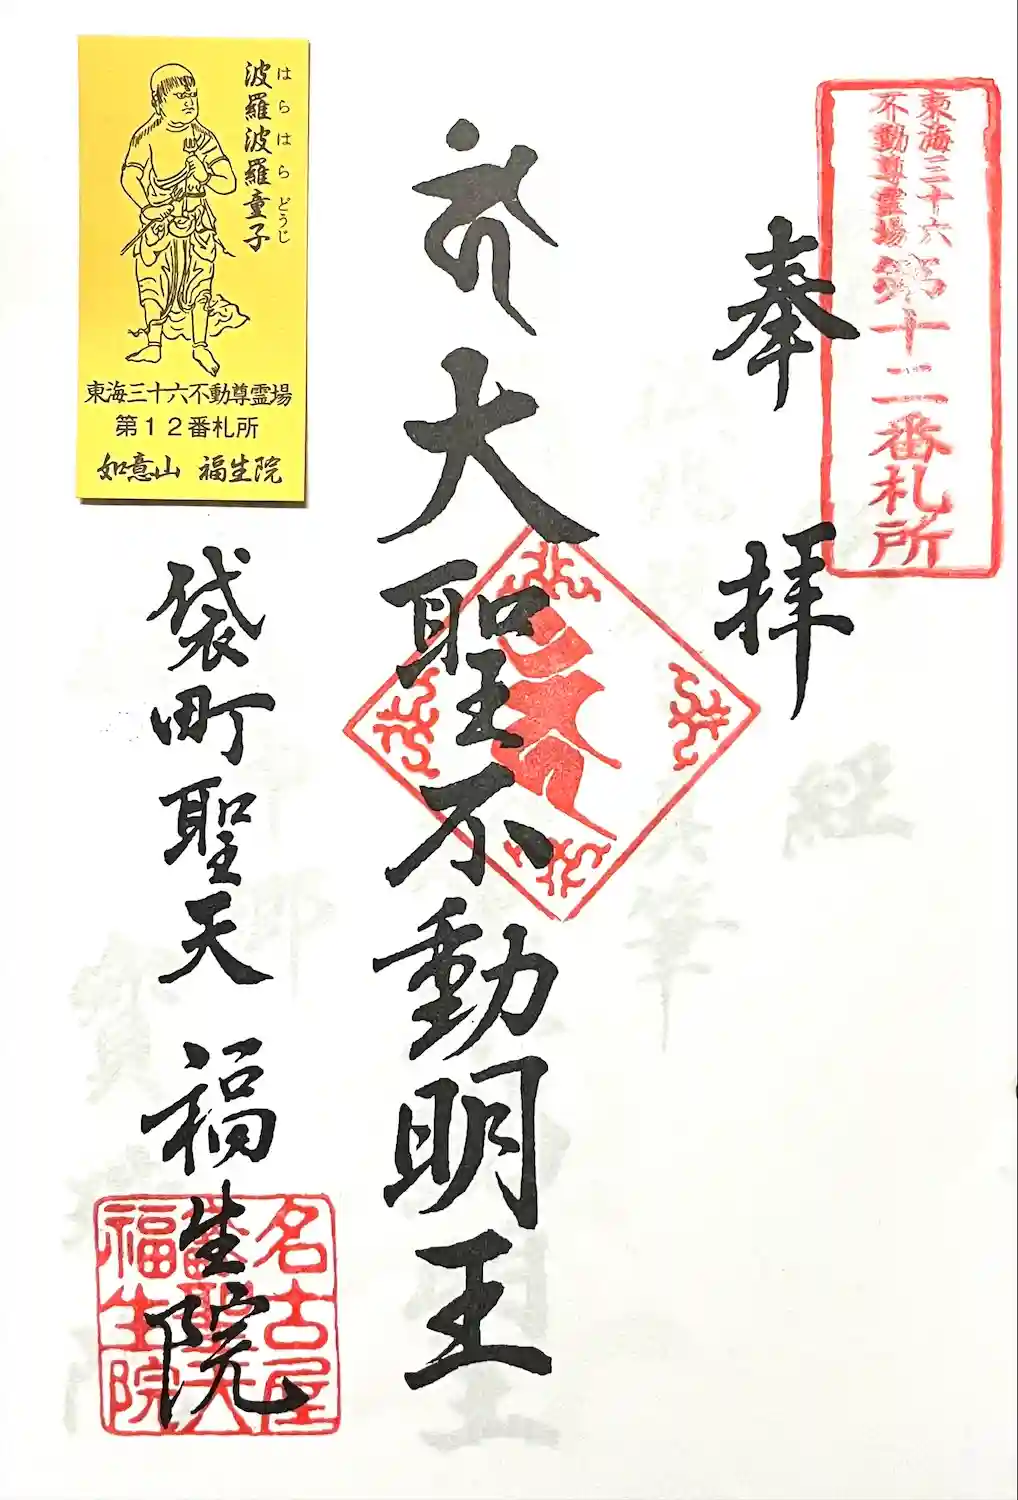 東海三十六
不動尊霊場
第十二番札所
奉拝
大聖不動明王
袋町聖天 福生院
名古屋
袋聖天
福生院
波羅波羅童子
はらはらどうじ
東海三十六不動尊霊場
第12番札所
如意山 福生院